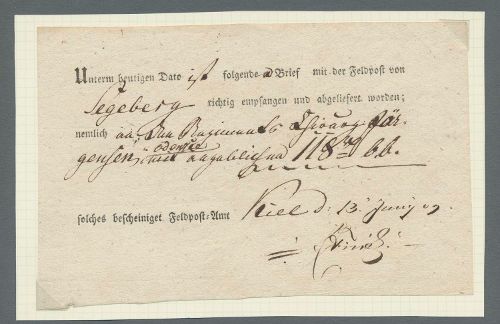 Unterm heutigen Dato ist folgende Brief mit der Feldpost von
Segeberg richtig empfangen und abgeliefert worden;
nemlich an Den Regiments Chirurg Jör-
gensen, mit 118 bb.
solches bescheiniget Feldpost-Amt Kiel d. 13 Juny